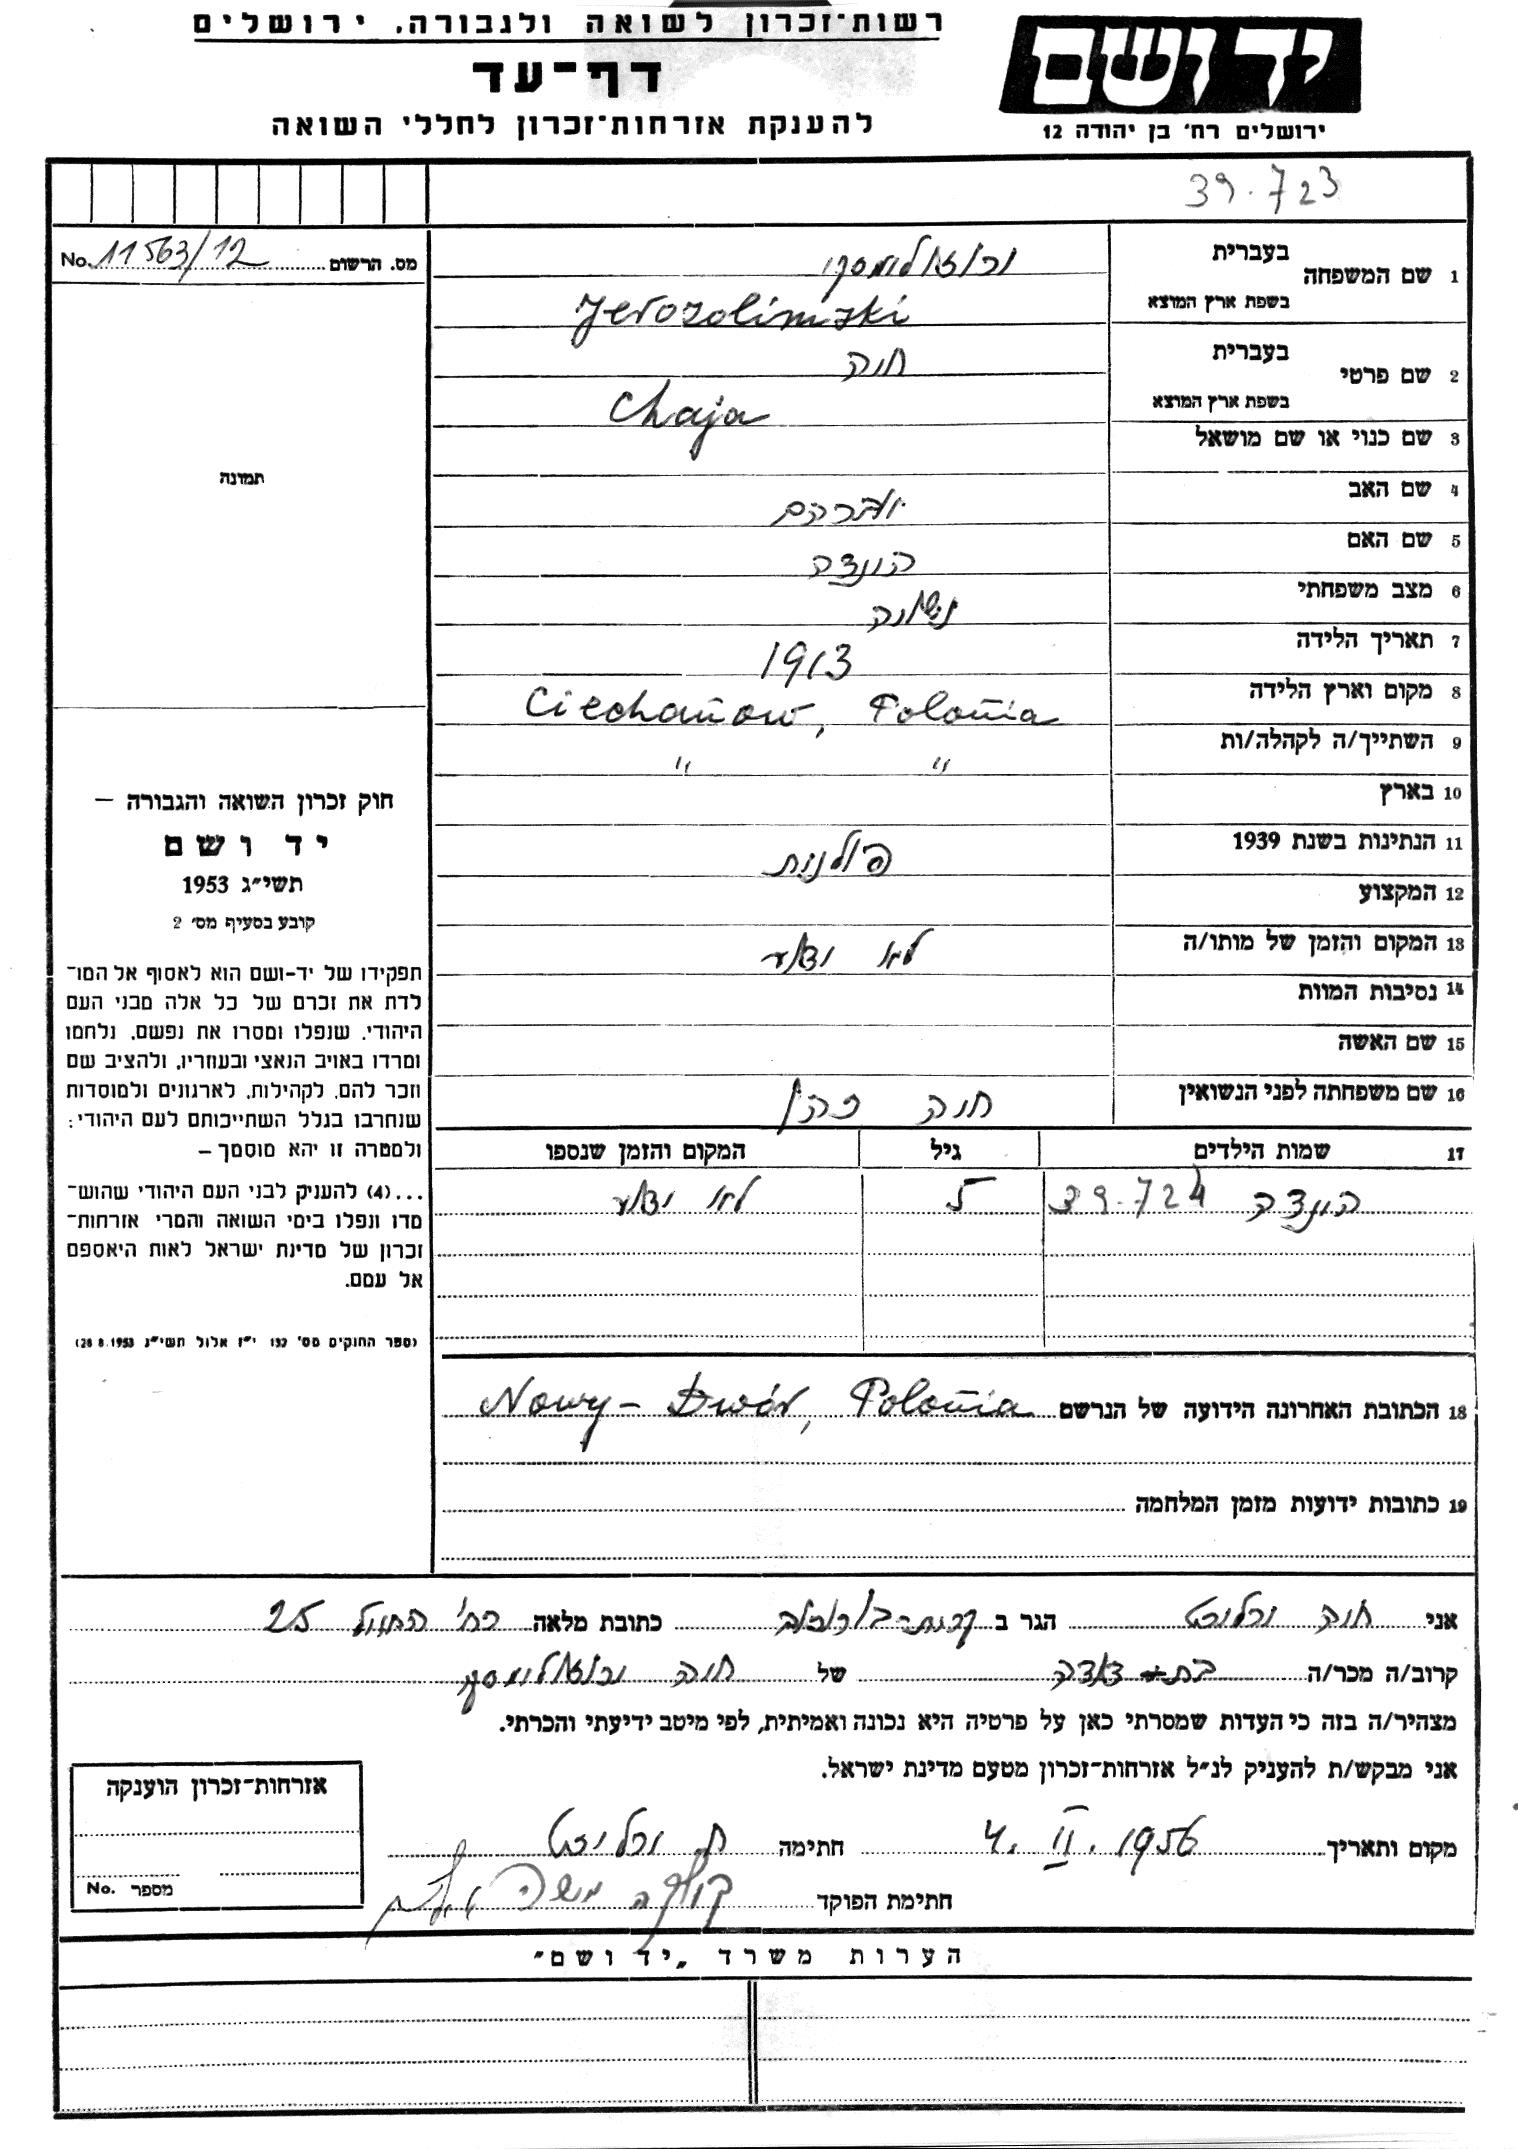 רשות־זכרון לשואה ולגבורה, ירושלים
דף־עד
להענקת אזרחות־זכרון לחללי השואה
יד ושם
ירושלים רח׳ בן יהודה 12
39.723
מס. הרשום 11563/12 No.
תמונה
חוק זכרון השואה והגבורה —
יד ושם
תשי״ג 1953
קובע בסעיף מס׳ 2
תפקידו של יד-ושם הוא לאסוף אל המו־
לדת את זכרם של כל אלה מבני העם
היהודי, שנפלו ומסרו את נפשם, נלחמו
ומרדו באויב הנאצי ובעוזריו, ולהציב שם
וזכר להם, לקהילות, לארגונים ולמוסדות
שנחרבו בגלל השתייכותם לעם היהודי;
ולמטרה זו יהא מוסמך —
...(4) להעניק לבני העם היהודי שהוש־
מדו ונפלו בימי השואה והמרי אזרחות־
זכרון של מדינת ישראל לאות היאספם
אל עמם.
(ספר החוקים מס׳ 132 י״ז אלול תשי״ג 28.8.1953)
1 שם המשפחה בעברית ירוזולימסקי
בשפת ארץ המוצא Jerozolimski
2 שם פרטי בעברית חיה
בשפת ארץ המוצא Chaja
3 שם כנוי או שם מושאל
4 שם האב אברהם
5 שם האם הינדה
6 מצב משפחתי נשואה
7 תאריך הלידה 1913
8 מקום וארץ הלידה Ciechanow, Polonia
9 השתייך/ה לקהלה/ות " "
10 בארץ
11 הנתינות בשנת 1939 פולנית
12 המקצוע
13 המקום והזמן של מותו/ה לא ידוע
14 נסיבות המוות
15 שם האשה
16 שם משפחתה לפני הנשואין חיה כהן
17 שמות הילדים גיל המקום והזמן שנספו
הינדה 39.724 5 לא ידוע
18 הכתובת האחרונה הידועה של הנרשם Nowy-Dwór, Polonia
19 כתובות ידועות מזמן המלחמה
אני חיה הגר ב קרית- כתובת מלאה רח׳ 25
קרוב/ה מכר/ה בת דודה של חיה ירוזולימסקי
מצהיר/ה בזה כי העדות שמסרתי כאן על פרטיה היא נכונה ואמיתית, לפי מיטב ידיעתי והכרתי.
אני מבקש/ת להעניק לנ״ל אזרחות־זכרון מטעם מדינת ישראל.
מקום ותאריך 4. II. 1956 חתימה ח
חתימת הפוקד משה
אזרחות־זכרון הוענקה
מספר No.
הערות משרד „יד ושם״